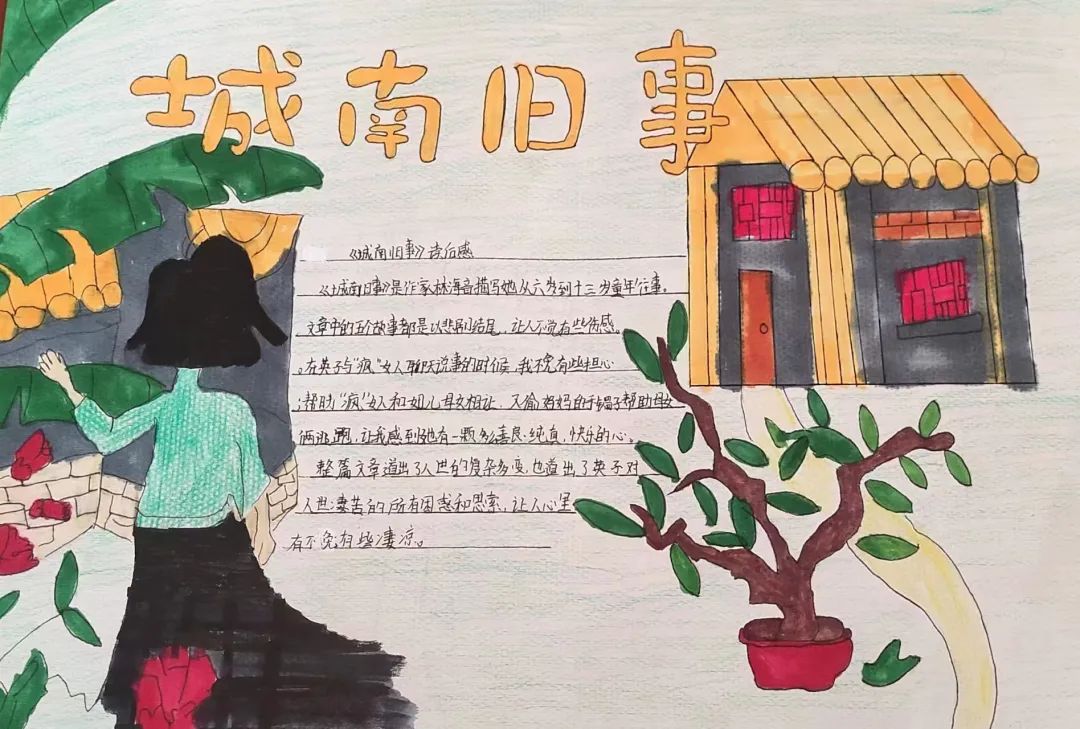 城南旧事
《城南旧事》读后感
《城南旧事》是作家林海音描写她从六岁到十三岁童年往事。
文章中的五个故事都是以悲剧结尾，让人不觉有些伤感。
在英子与“疯”女人聊天说事的时候，我不免有些担心
帮助“疯”女人和女儿母女相认，又偷妈妈的手镯子帮助母女
俩逃跑，让我感到她有一颗多善良、纯真，快乐的心。
整篇文章道出了人世的复杂多变，也道出了英子对
人世凄苦的所有困惑和思索，让人心里
有不免有些凄凉。